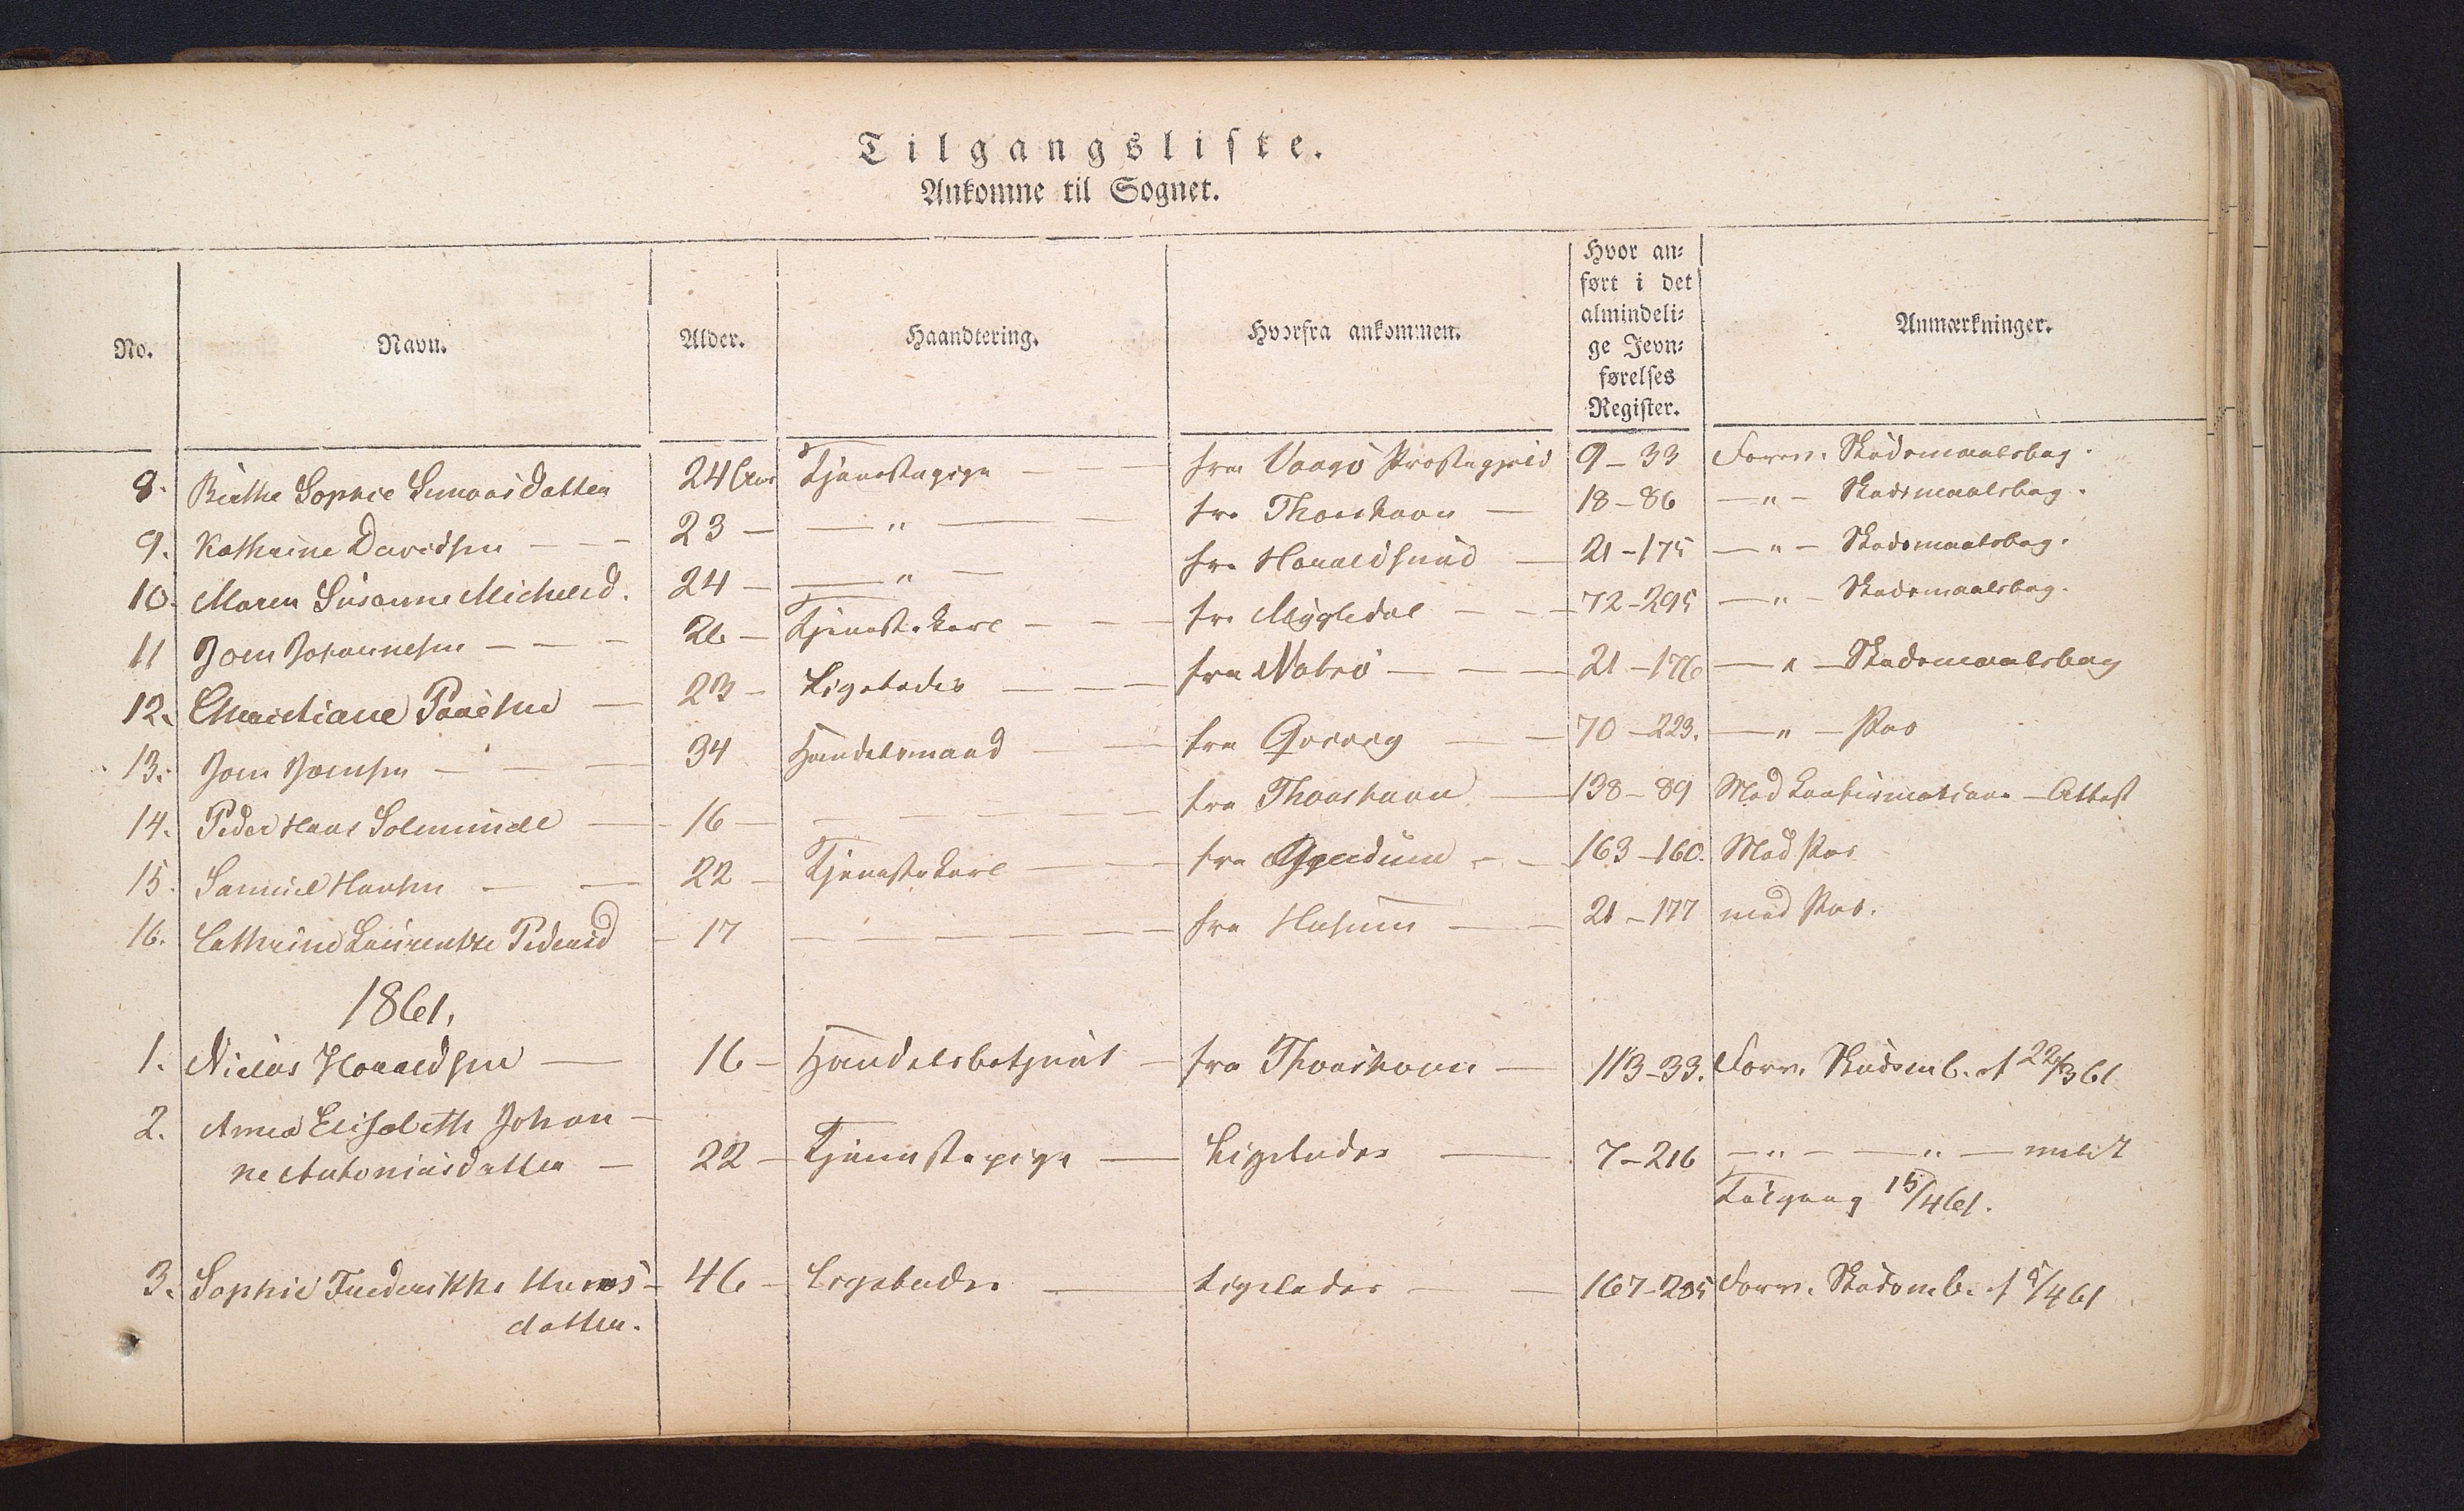 Tilgangsliste.
Ankomne til Sognet.
No. Navn. Alder. Haandtering. Hvorfra ankommen. Hvor an-
ført i det
almindeli-
ge Jevn-
førelses
Register. Anmærkninger.
8. Birthe Sophie Simonsdatter 24 Aar Tjenestepige — fra Vaagø Præstegjeld 9-33 Forev. Skudsmaalsbog.
9. Kathrine Davidsen — 23 — " — fra Thorshavn — 18-86 — " — Skudsmaalsbog.
10. Maren Susanne Michelsd. 24 — " — fra Haraldsund — 21-175 — " — Skudsmaalsbog.
11 Joen Johannesen — 26 — Tjenestekarl — fra Mygledal — 72-295 — " — Skudsmaalsbog.
12. Christiane Poulsen — 23 — Ligeledes — fra Nolsø — 21-176 — " — Skudsmaalsbog
13. Joen Joensen — 34 Handelsmand — fra 70-223. — " — Pas
14. Peder Hans Solmunde — 16 — fra Thorshavn — 138-89 Med Konfirmations-Attest
15. Samuel Hansen — 22 — Tjenestekarl — fra — 163-160. Med Pas
16. Cathrine Laurentze Pedersd — 17 — fra Husum — 21-177 med Pas.
1861.
1. Niclas Haraldsen — 16 — Handelsbetjent — fra Thorshavn — 113-33. Forev. Skudsmb. af 22/3 61
2. Anna Elisabeth Johan-
ne Antoniusdatter — 22 — Tjenestepige — Ligeledes — 7-216 — " — " —
Tilgang 15/4 61.
3. Sophie Frederikke Hans- 46 — Ligeledes — Ligeledes — 167-205 Forev. Skudsmb. af 5/4 61
datter.